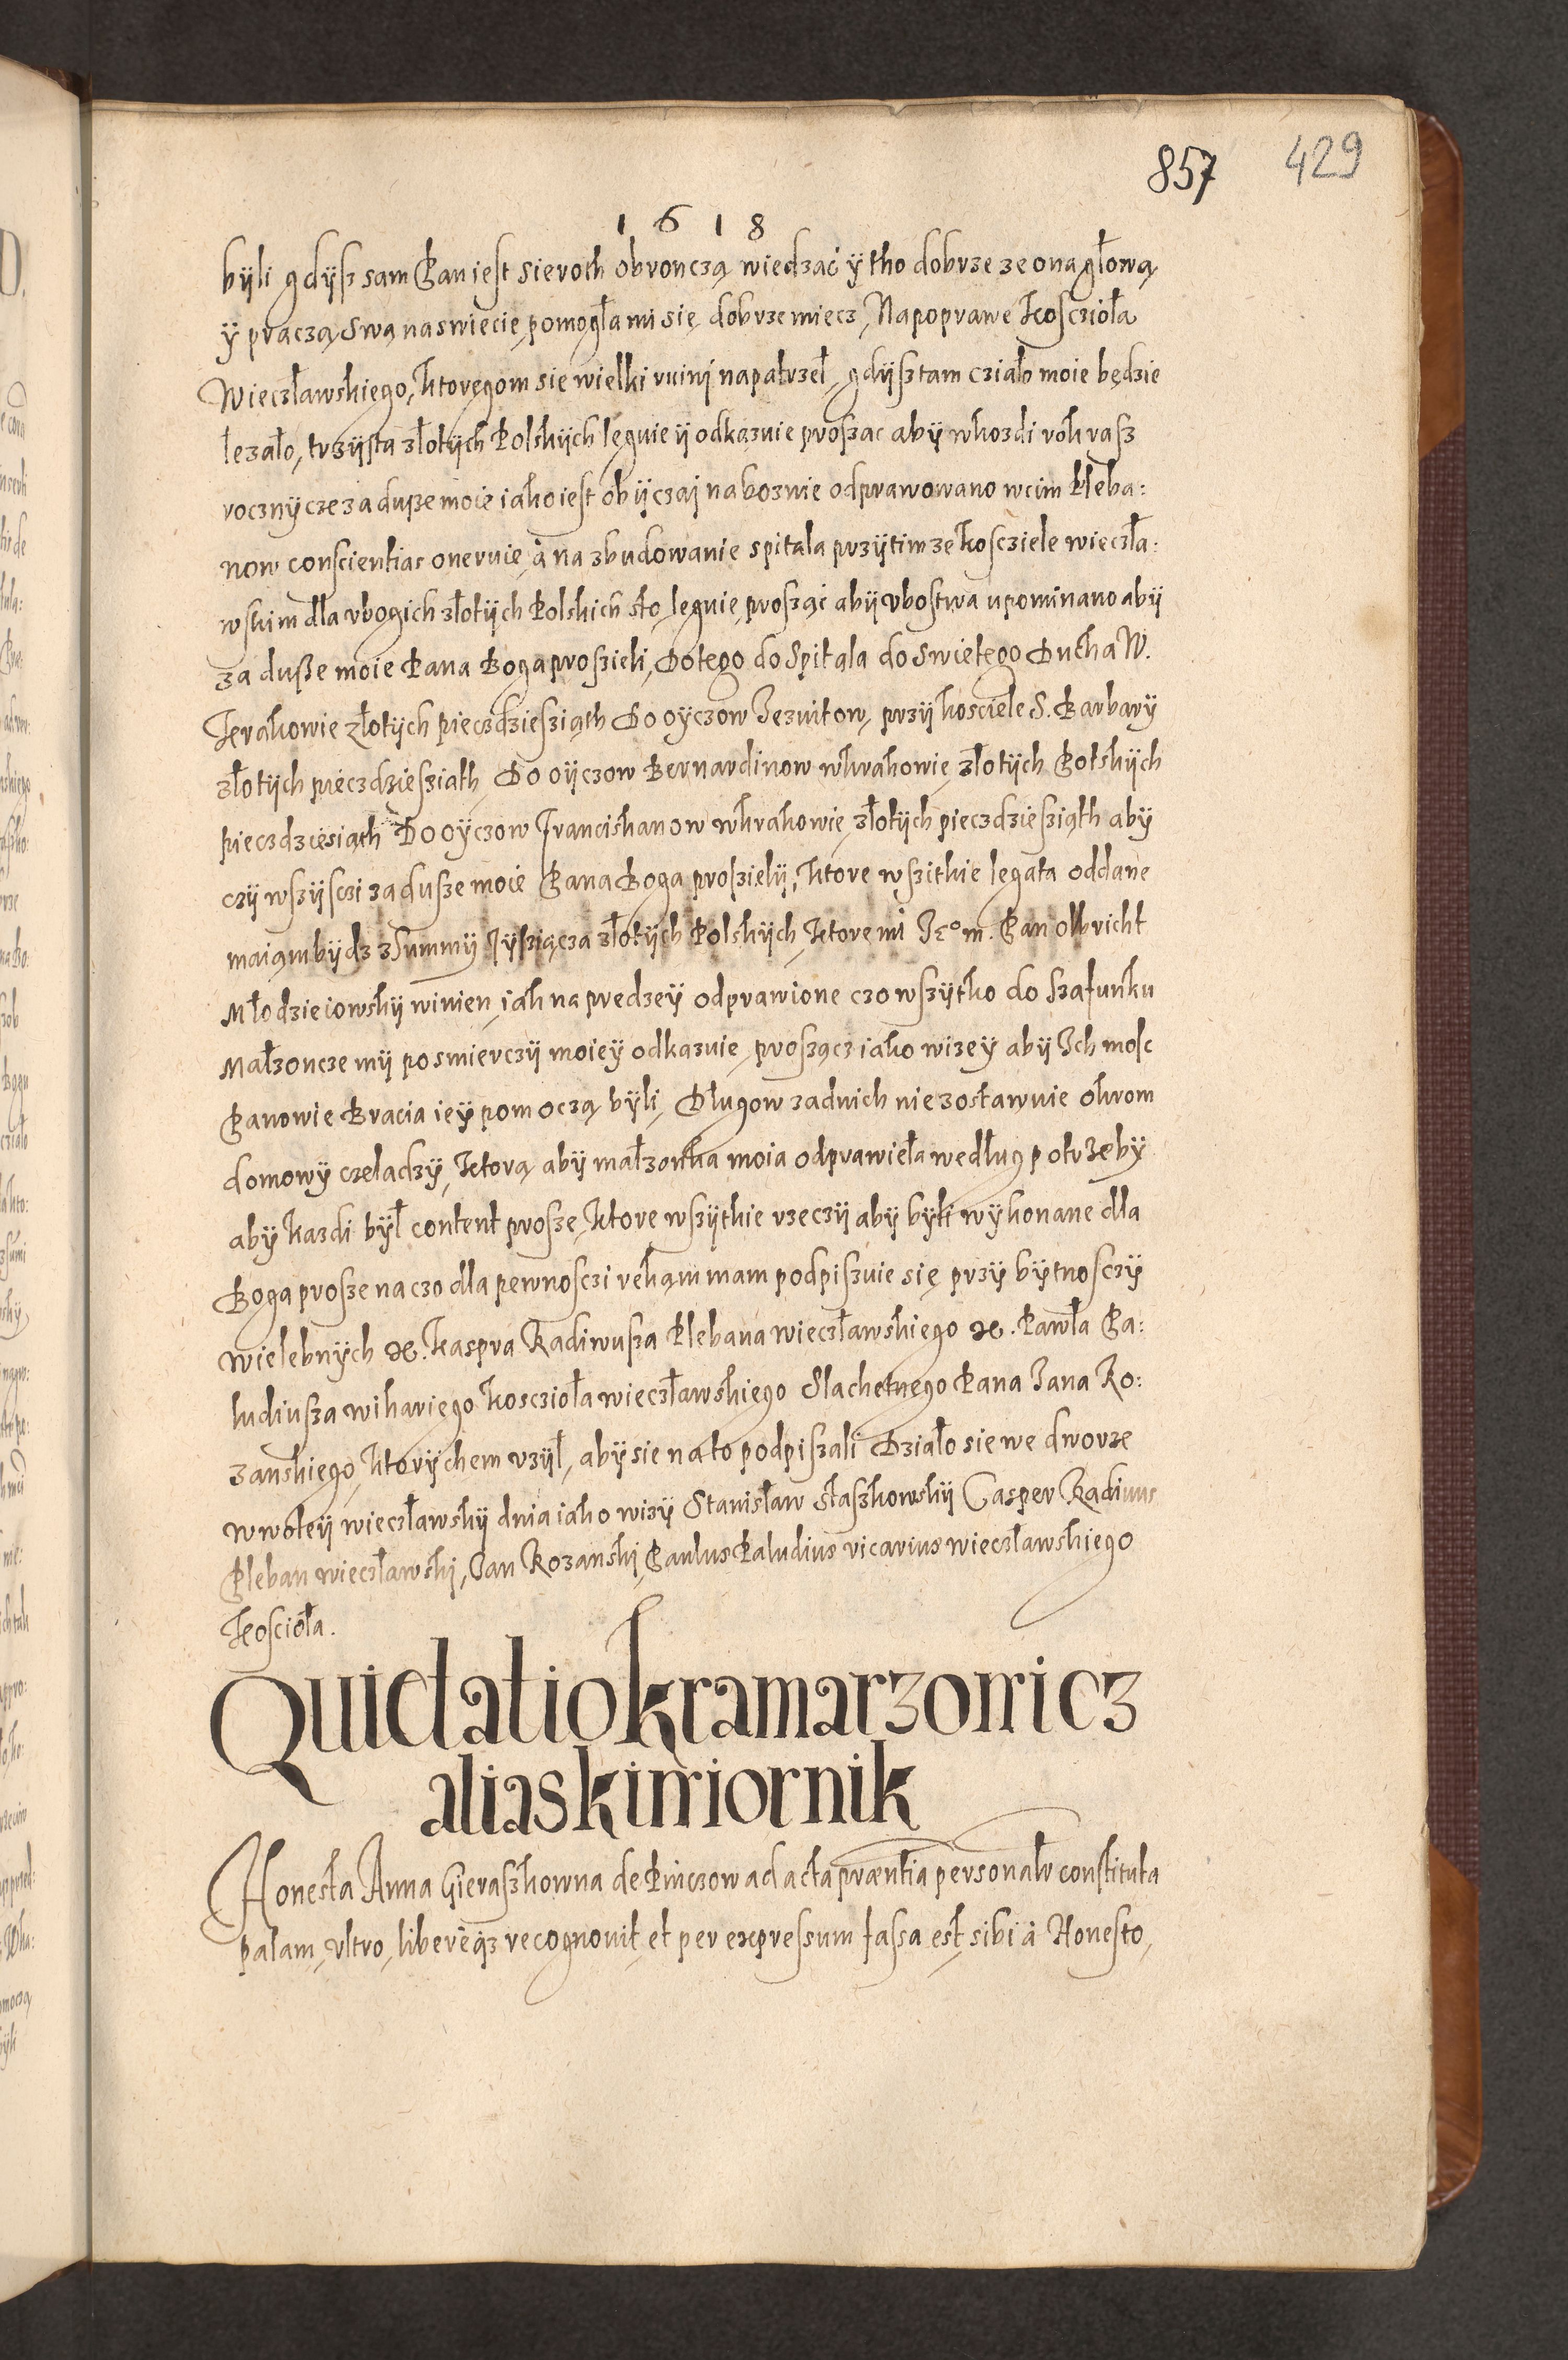 857 429
1618
byli gdysz sam Pan iest sieroth obronczą wiedzać y tho dobrze ze ona głową
y praczą swą na swiecie pomogła mi się dobrze miecz, Na poprawe Kosczioła
Wieczławskiego, ktoregom sie wielki ruini napatrzeł, gdysz tam cziało moie będzie
lezało, trzysta złotych Polskych leguie y odkazuie proszac aby w kozdi rok rasz
roczny cze za dusze moie iako iest obyczaj naboznie odprawowano w cim Pleba:
now conscientias oneruie, à na zbudowanie spitala przy tim ze kosczciele wieczła:
wskim dla vbogich złotych Polskich sto leguie prosząc aby vbostwa upominano aby
za dusze moie Pana Boga proszieli, Do tego do Spitala do Swietego Ducha W.
Krakowie złotych pieczdziesziąth Do oyczow Jezuitow, przy kosciele S. Barbary
złotych pieczdziesziath, Do oyczow Bernardinow w krakowie, złotych Polskych
pieczdziesiąth Do oyczow Franciskanow w krakowie, złotych pieczdziesziąth aby
czy wszysczi za dusze moie Pana Boga prosziely, ktore wszithie legata oddane
maiąm bydz z Summy Tysziącza złotych Polskych, ktore mi Jeo m. Pan Olbricht
Młodzieiowsky winien, iak na predzey odprawione czo wszytko do Szafunku
Małzoncze my po smierczy moiey odkazuie, proszącz iako wizey aby Ich mosc
Panowie Bracia iey pomoczą byli, Długow zadnich nie zostawuie okrom
domowy czeladzy, ktorą aby małzonka moia odprawieła według potrzeby
aby kazdi był content prosze, ktore wszythie rzeczy aby byłi wykonane dla
Boga prosze na czo dla pewnosczi rekąm mam podpiszuie się przy bytnosczy
Wielebnych X. Kaspra Radiwusza Plebana wieczławskiego X. Pawła Pa:
ludiusza wikariego kosczioła wieczławskiego Slachetnego Pana Jana Ro:
zanskiego, ktorychem vzył, aby sie na to podpiszali Działo sie we dworze
w woley wieczławsky dnia iako wizy Stanisław Staszkowsky Casper Radiuus
Pleban wieczławski, Jan Rozanski, Paulus Paludius vicarius wieczławskiego
Koscioła.
Quictatio kramarzowicz
alias kimiornik
Honesta Anna Gieraszkowna de Pinczow ad acta præntia personalr constituta
palam, vltro, libereqз recognouit, et per expressum fassa est, sibi à Honesto,